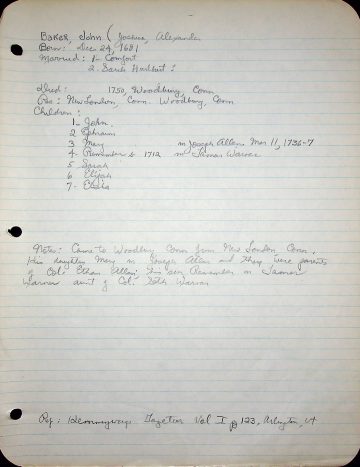 Baker, John (Joshua, Alexander
Born: Dec 24, 1681
Married: 1- Comfort
2- Sarah Hurlbut?
Died: 1750, Woodbury, Conn
Res: New London, Conn. Woodbury, Conn
Children:
1- John
2 Ephraim
3 Mary m Joseph Allen Mar 11, 1736-7
4- Remember b 1712 m Tamar Warner
5 Sarah
6 Elijah
7-
Notes: Came to Woodbury Conn from New London, Conn.
His daughter Mary m Joseph Allen and they were parents
of Col. Ethan Allen; his son Remember m Tamar
Warner aunt of Col. Seth Warner
Ref: Hemmingways Gazetteer Vol I p 123, Arlington, Vt